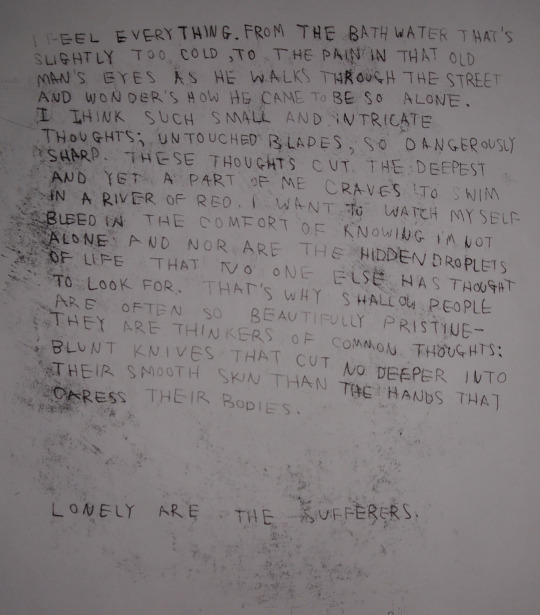 I FEEL EVERYTHING. FROM THE BATH WATER THAT'S
SLIGHTLY TOO COLD, TO THE PAIN IN THAT OLD
MAN'S EYES AS HE WALKS THROUGH THE STREET
AND WONDER'S HOW HE CAME TO BE SO ALONE.
I THINK SUCH SMALL AND INTRICATE
THOUGHTS; UNTOUCHED BLADES, SO DANGEROUSLY
SHARP. THESE THOUGHTS CUT THE DEEPEST
AND YET A PART OF ME CRAVES TO SWIM
IN A RIVER OF RED. I WANT TO WATCH MYSELF
BLEED IN THE COMFORT OF KNOWING I'M NOT
ALONE AND NOR ARE THE HIDDEN DROPLETS
OF LIFE THAT NO ONE ELSE HAS THOUGHT
TO LOOK FOR. THAT'S WHY SHALLOW PEOPLE
ARE OFTEN SO BEAUTIFULLY PRISTINE-
THEY ARE THINKERS OF COMMON THOUGHTS:
BLUNT KNIVES THAT CUT NO DEEPER INTO
THEIR SMOOTH SKIN THAN THE HANDS THAT
CARESS THEIR BODIES.
LONELY ARE THE SUFFERERS.